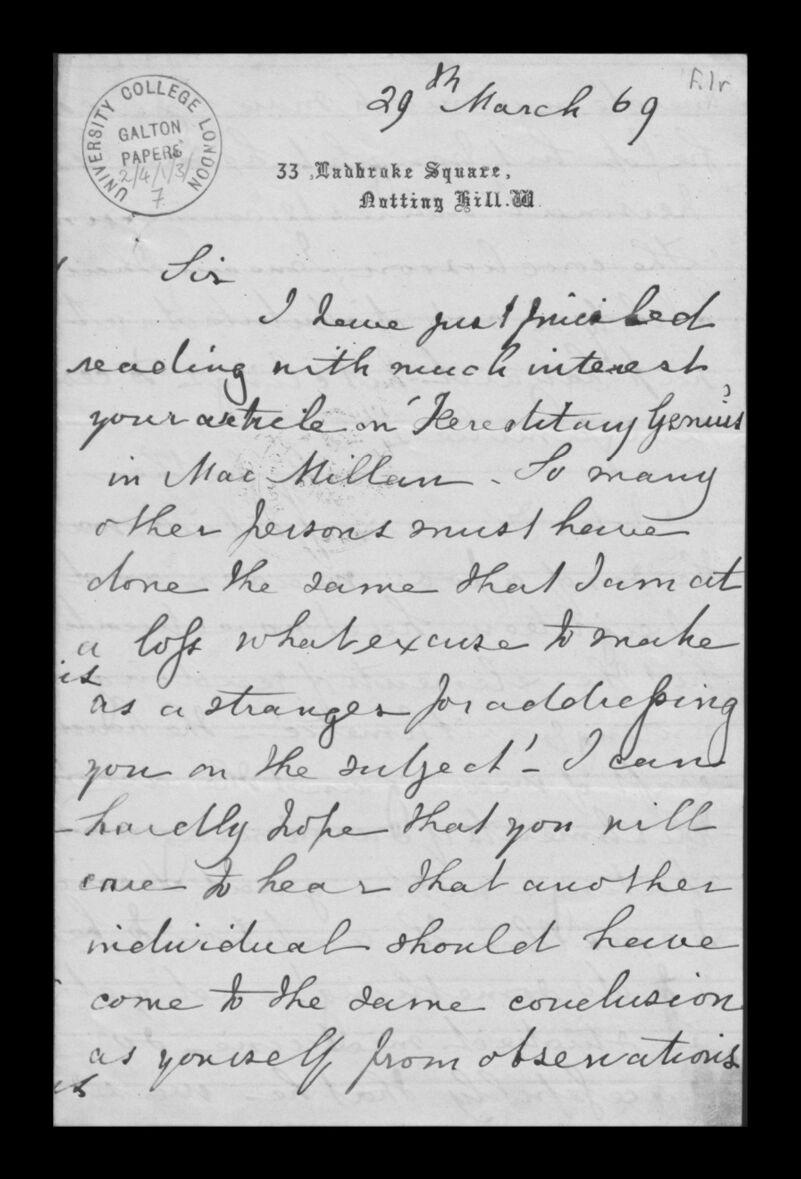 f.1r
29th March 69
UNIVERSITY COLLEGE LONDON
GALTON
PAPERS
2/4/1/3/
7
33, Ladbroke Square,
Notting Hill. W.
Sir
I have just finished
reading with much interest
your article on 'Hereditary Genius'
in Mac Millan - So many
other persons must have
done the same that I am at
a loss what excuse to make
as a stranger for addressing
you on the subject! - I can
hardly hope that you will
care to hear that another
individual should have
come to the same conclusion
as yourself from observations